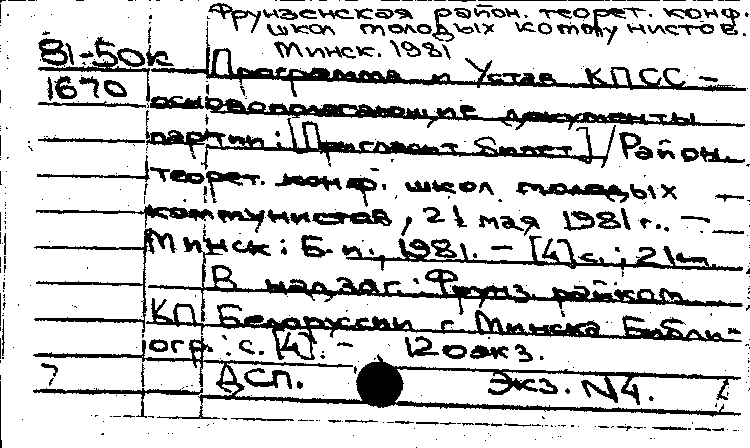 Фрунзенская район. теорет. конф.
школ молодых коммунистов.
Минск. 1981
81-50к
Программа и Устав КПСС –
1670
основополагающие документы
партии: [Пригласит. билет] / Район.
теорет. конф. школ молодых
коммунистов, 21 мая 1981 г. –
Минск: Б. и., 1981. – [4] с.; 21 см.
В надзаг.: Фрунз. райком
КП Белоруссии г. Минска Библи-
огр.: с. [4]. – 120 экз.
ДСП. Экз. N4.